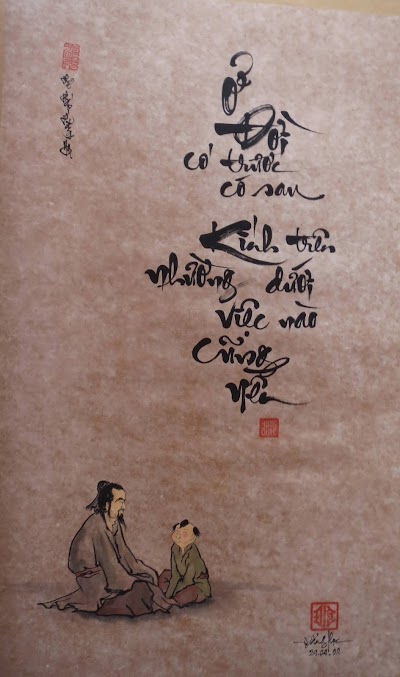 Ở
Đời
có trước
có sau
Kính trên
nhường dưới
việc nào
Cũng
yên